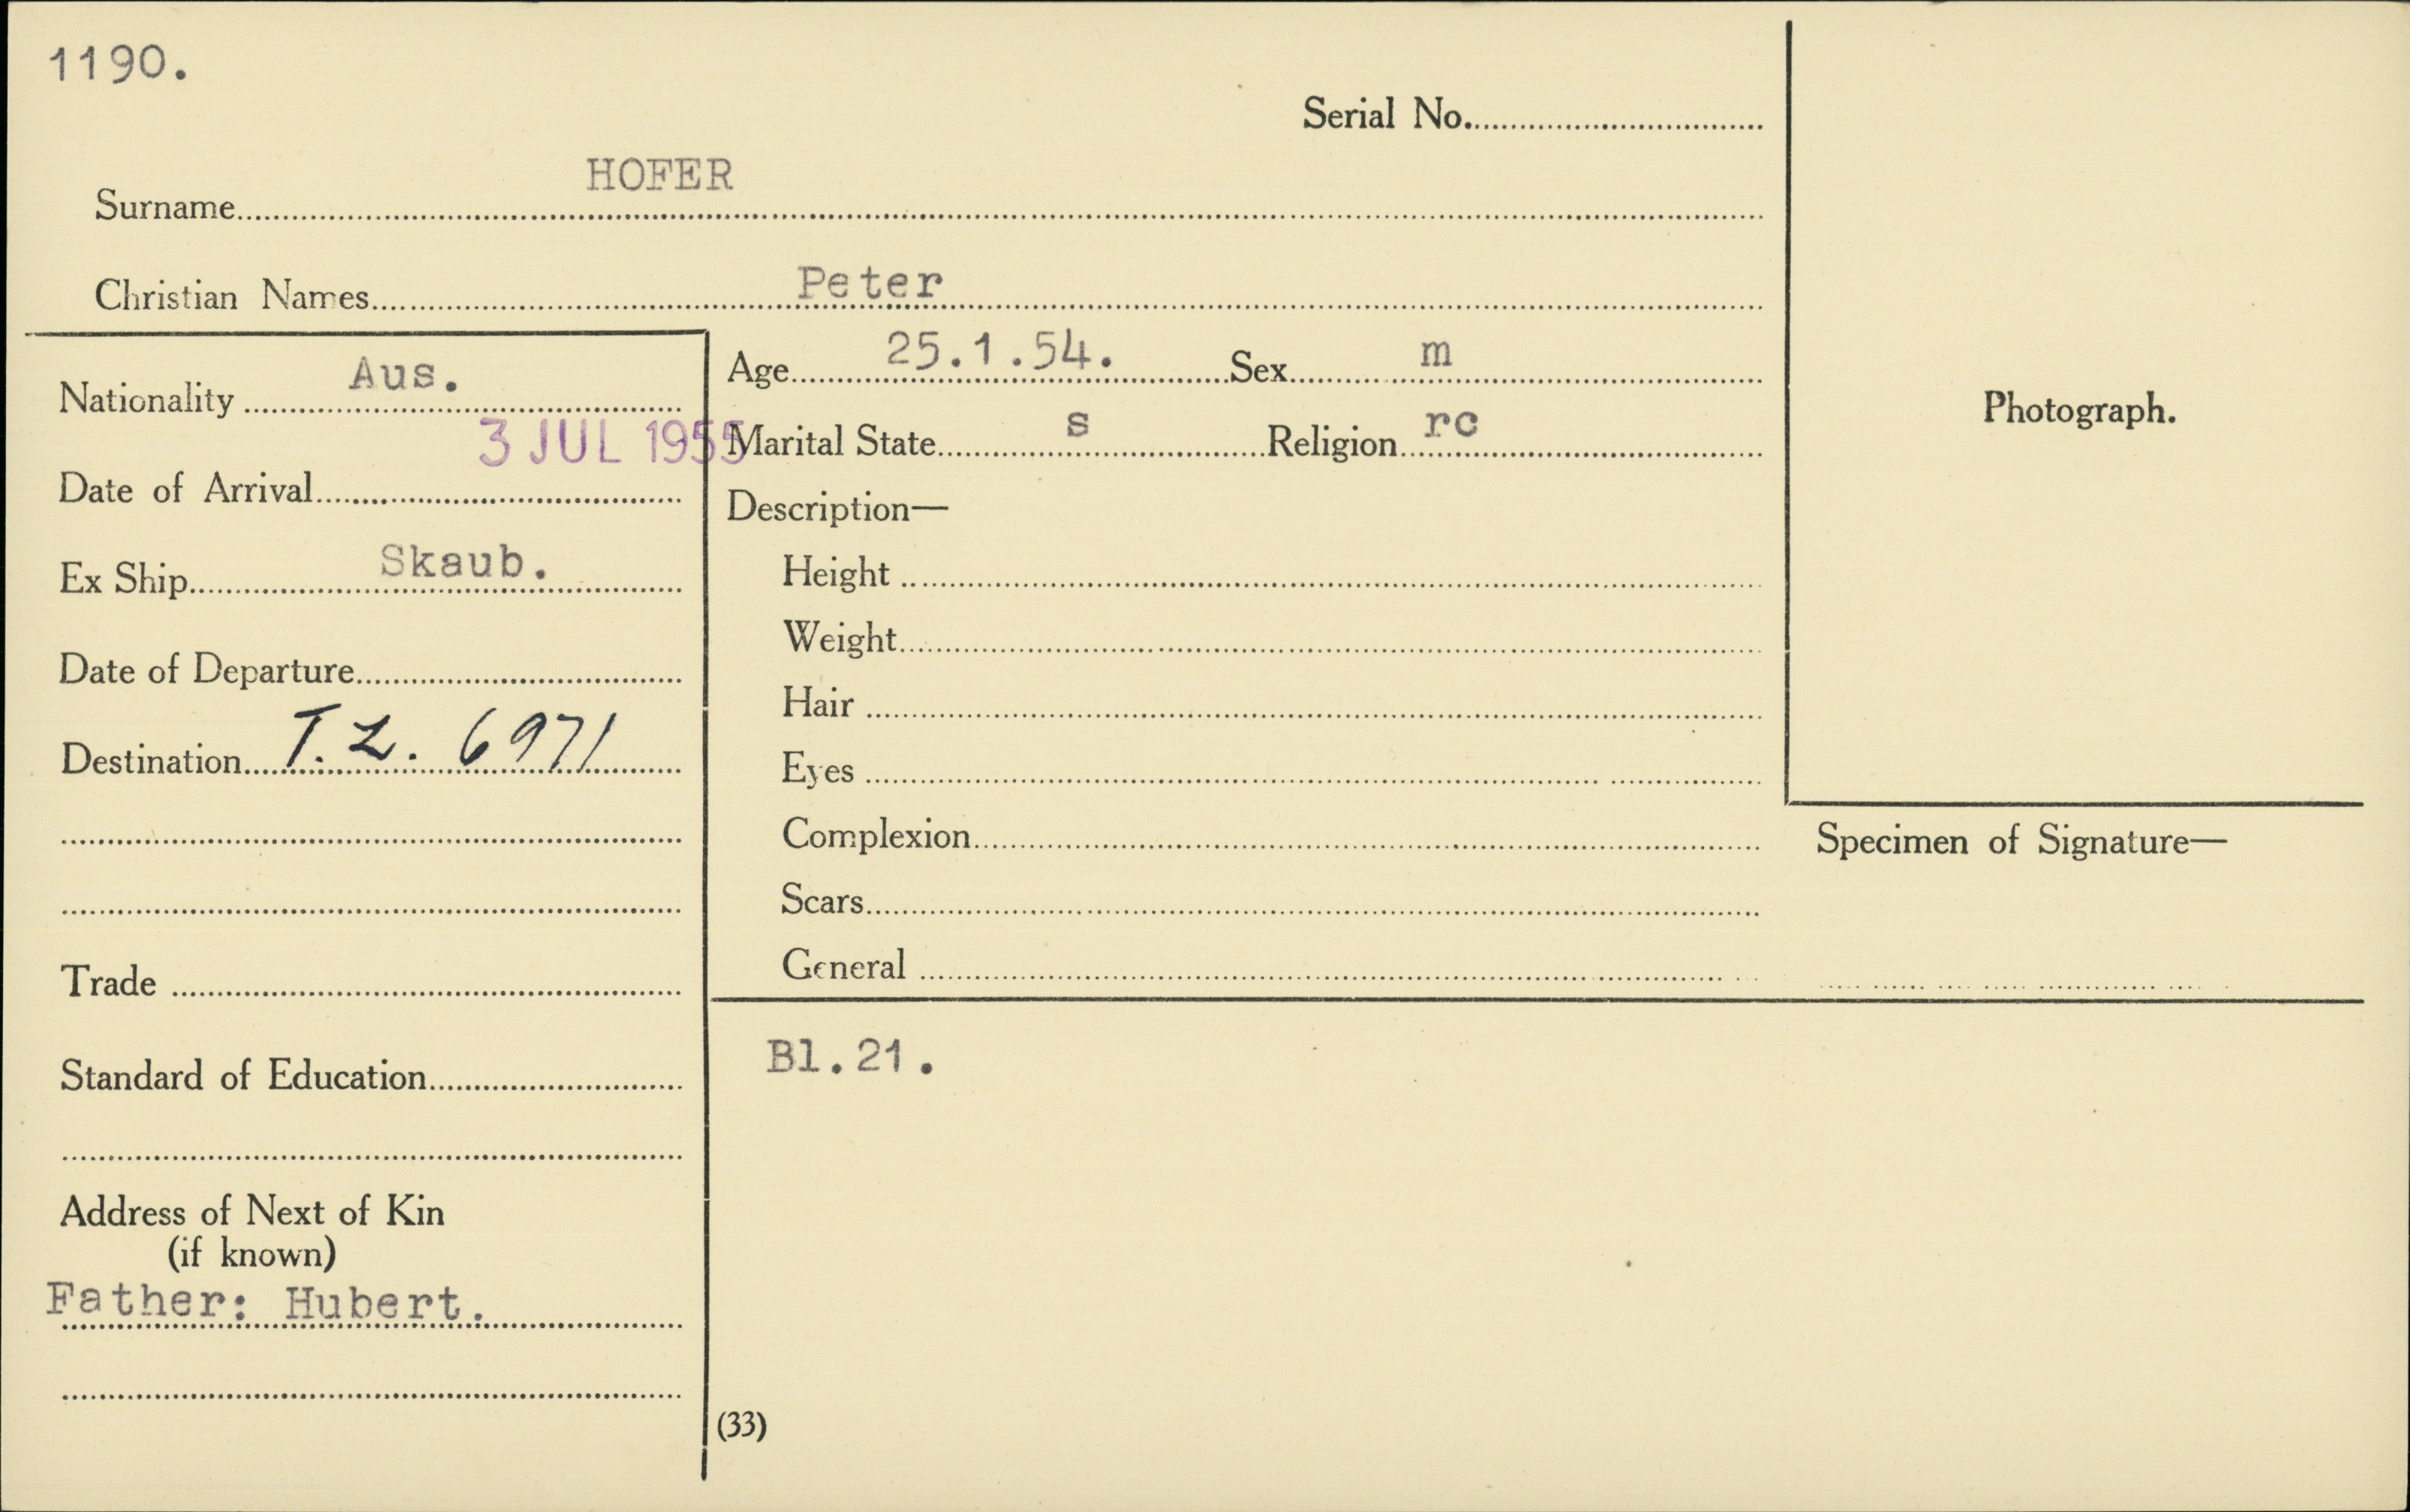 1190.
Serial No.
HOFER
Surname
Peter
Christian Names
Aus.
Nationality
3 JUL 1955
Date of Arrival
Skaub.
Ex Ship
Date of Departure
Destination T.L. 6971
Trade
Standard of Education
Address of Next of Kin
(if known)
Father: Hubert.
Age 25.1.54. Sex m
Marital State s Religion rc
Description—
Height
Weight
Hair
Eyes
Complexion
Scars
General
Photograph.
Specimen of Signature—
Bl.21.
(33)